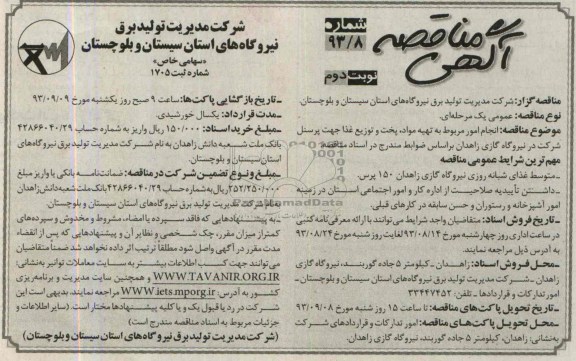 شرکت مدیریت تولید برق
نیروگاه‌های استان سیستان و بلوچستان
«سهامی خاص»
شماره ثبت ۱۷۰۵
آگهی مناقصه
شماره
۹۳/۸
نوبت دوم
مناقصه گزار: شرکت مدیریت تولید برق نیروگاه‌های استان سیستان و بلوچستان.
نوع مناقصه: عمومی یک مرحله‌ای.
موضوع مناقصه: انجام امور مربوط به تهیه مواد، پخت و توزیع غذا جهت پرسنل
شرکت در نیروگاه گازی زاهدان براساس ضوابط مندرج در اسناد مناقصه.
مهم‌ترین شرایط عمومی مناقصه
ـ متوسط غذای شبانه روزی نیروگاه گازی زاهدان ۱۵۰ پرس.
ـ داشتن تأییدیه صلاحیت از اداره کار و امور اجتماعی استان در زمینه
امور آشپزخانه و رستوران و حسن سابقه در کارهای قبلی.
ـ تاریخ فروش اسناد: متقاضیان واجد شرایط می‌توانند با ارائه معرفی‌نامه کتبی
در ساعت اداری روز چهارشنبه مورخ ۹۳/۰۸/۱۴ لغایت روز شنبه مورخ ۹۳/۰۸/۲۴
به آدرس ذیل مراجعه نمایند.
ـ محل فروش اسناد: زاهدان ـ کیلومتر ۵ جاده گوربند، نیروگاه گازی
زاهدان ـ شرکت مدیریت تولید برق نیروگاه‌های استان سیستان و بلوچستان ـ
امور تدارکات و قراردادها ـ تلفن: ۳۳۴۴۷۴۵۲
ـ تاریخ تحویل پاکت‌های مناقصه: تا ساعت ۱۵ روز شنبه مورخ ۹۳/۰۹/۰۸
ـ محل تحویل پاکت‌های مناقصه: امور تدارکات و قراردادهای شرکت
به‌نشانی: زاهدان، کیلومتر ۵ جاده گوربند، نیروگاه گازی زاهدان.
ـ تاریخ بازگشایی پاکت‌ها: ساعت ۹ صبح روز یکشنبه مورخ ۹۳/۰۹/۰۹
ـ مدت قرارداد: یکسال خورشیدی.
ـ مبلغ خرید اسناد: ۱۵۰/۰۰۰ ریال واریز به شماره حساب ۴۲۸۶۶۰۴۰/۲۹
بانک ملت شعبه دانش زاهدان به نام شرکت مدیریت تولید برق نیروگاه‌های
استان سیستان و بلوچستان.
ـ مبلغ و نوع تضمین شرکت در مناقصه: ضمانت‌نامه بانکی یا واریز مبلغ
۲۵۲/۲۵۰/۰۰۰ ریال به‌شماره حساب ۴۲۸۶۶۰۴۰/۲۹ بانک ملت شعبه دانش زاهدان
بنام شرکت مدیریت تولید برق نیروگاه‌های استان سیستان و بلوچستان.
ـ به پیشنهادهایی که فاقد سپرده یا امضاء، مشروط و مخدوش و سپرده‌های
کمتر از میزان مقرر، چک شخصی و نظایر آن و پیشنهادهایی که پس از انقضاء
مدت مقرر در آگهی واصل شود مطلقاً ترتیب اثر داده نخواهد شد ضمناً متقاضیان
می‌توانند جهت کسب اطلاعات بیشتر به سایت معاملات توانیر به‌نشانی:
WWW.TAVANIR.ORG.IR و همچنین سایت مدیریت و برنامه‌ریزی
کشور به آدرس: WWW.iets.mporg.ir مراجعه نمایند. بدیهی است این
شرکت در رد یا قبول یک و یا کلیه پیشنهادها مختار است. (سایر اطلاعات و
جزئیات مربوط به اسناد مناقصه مندرج است)
(شرکت مدیریت تولید برق نیروگاه‌های استان سیستان و بلوچستان)